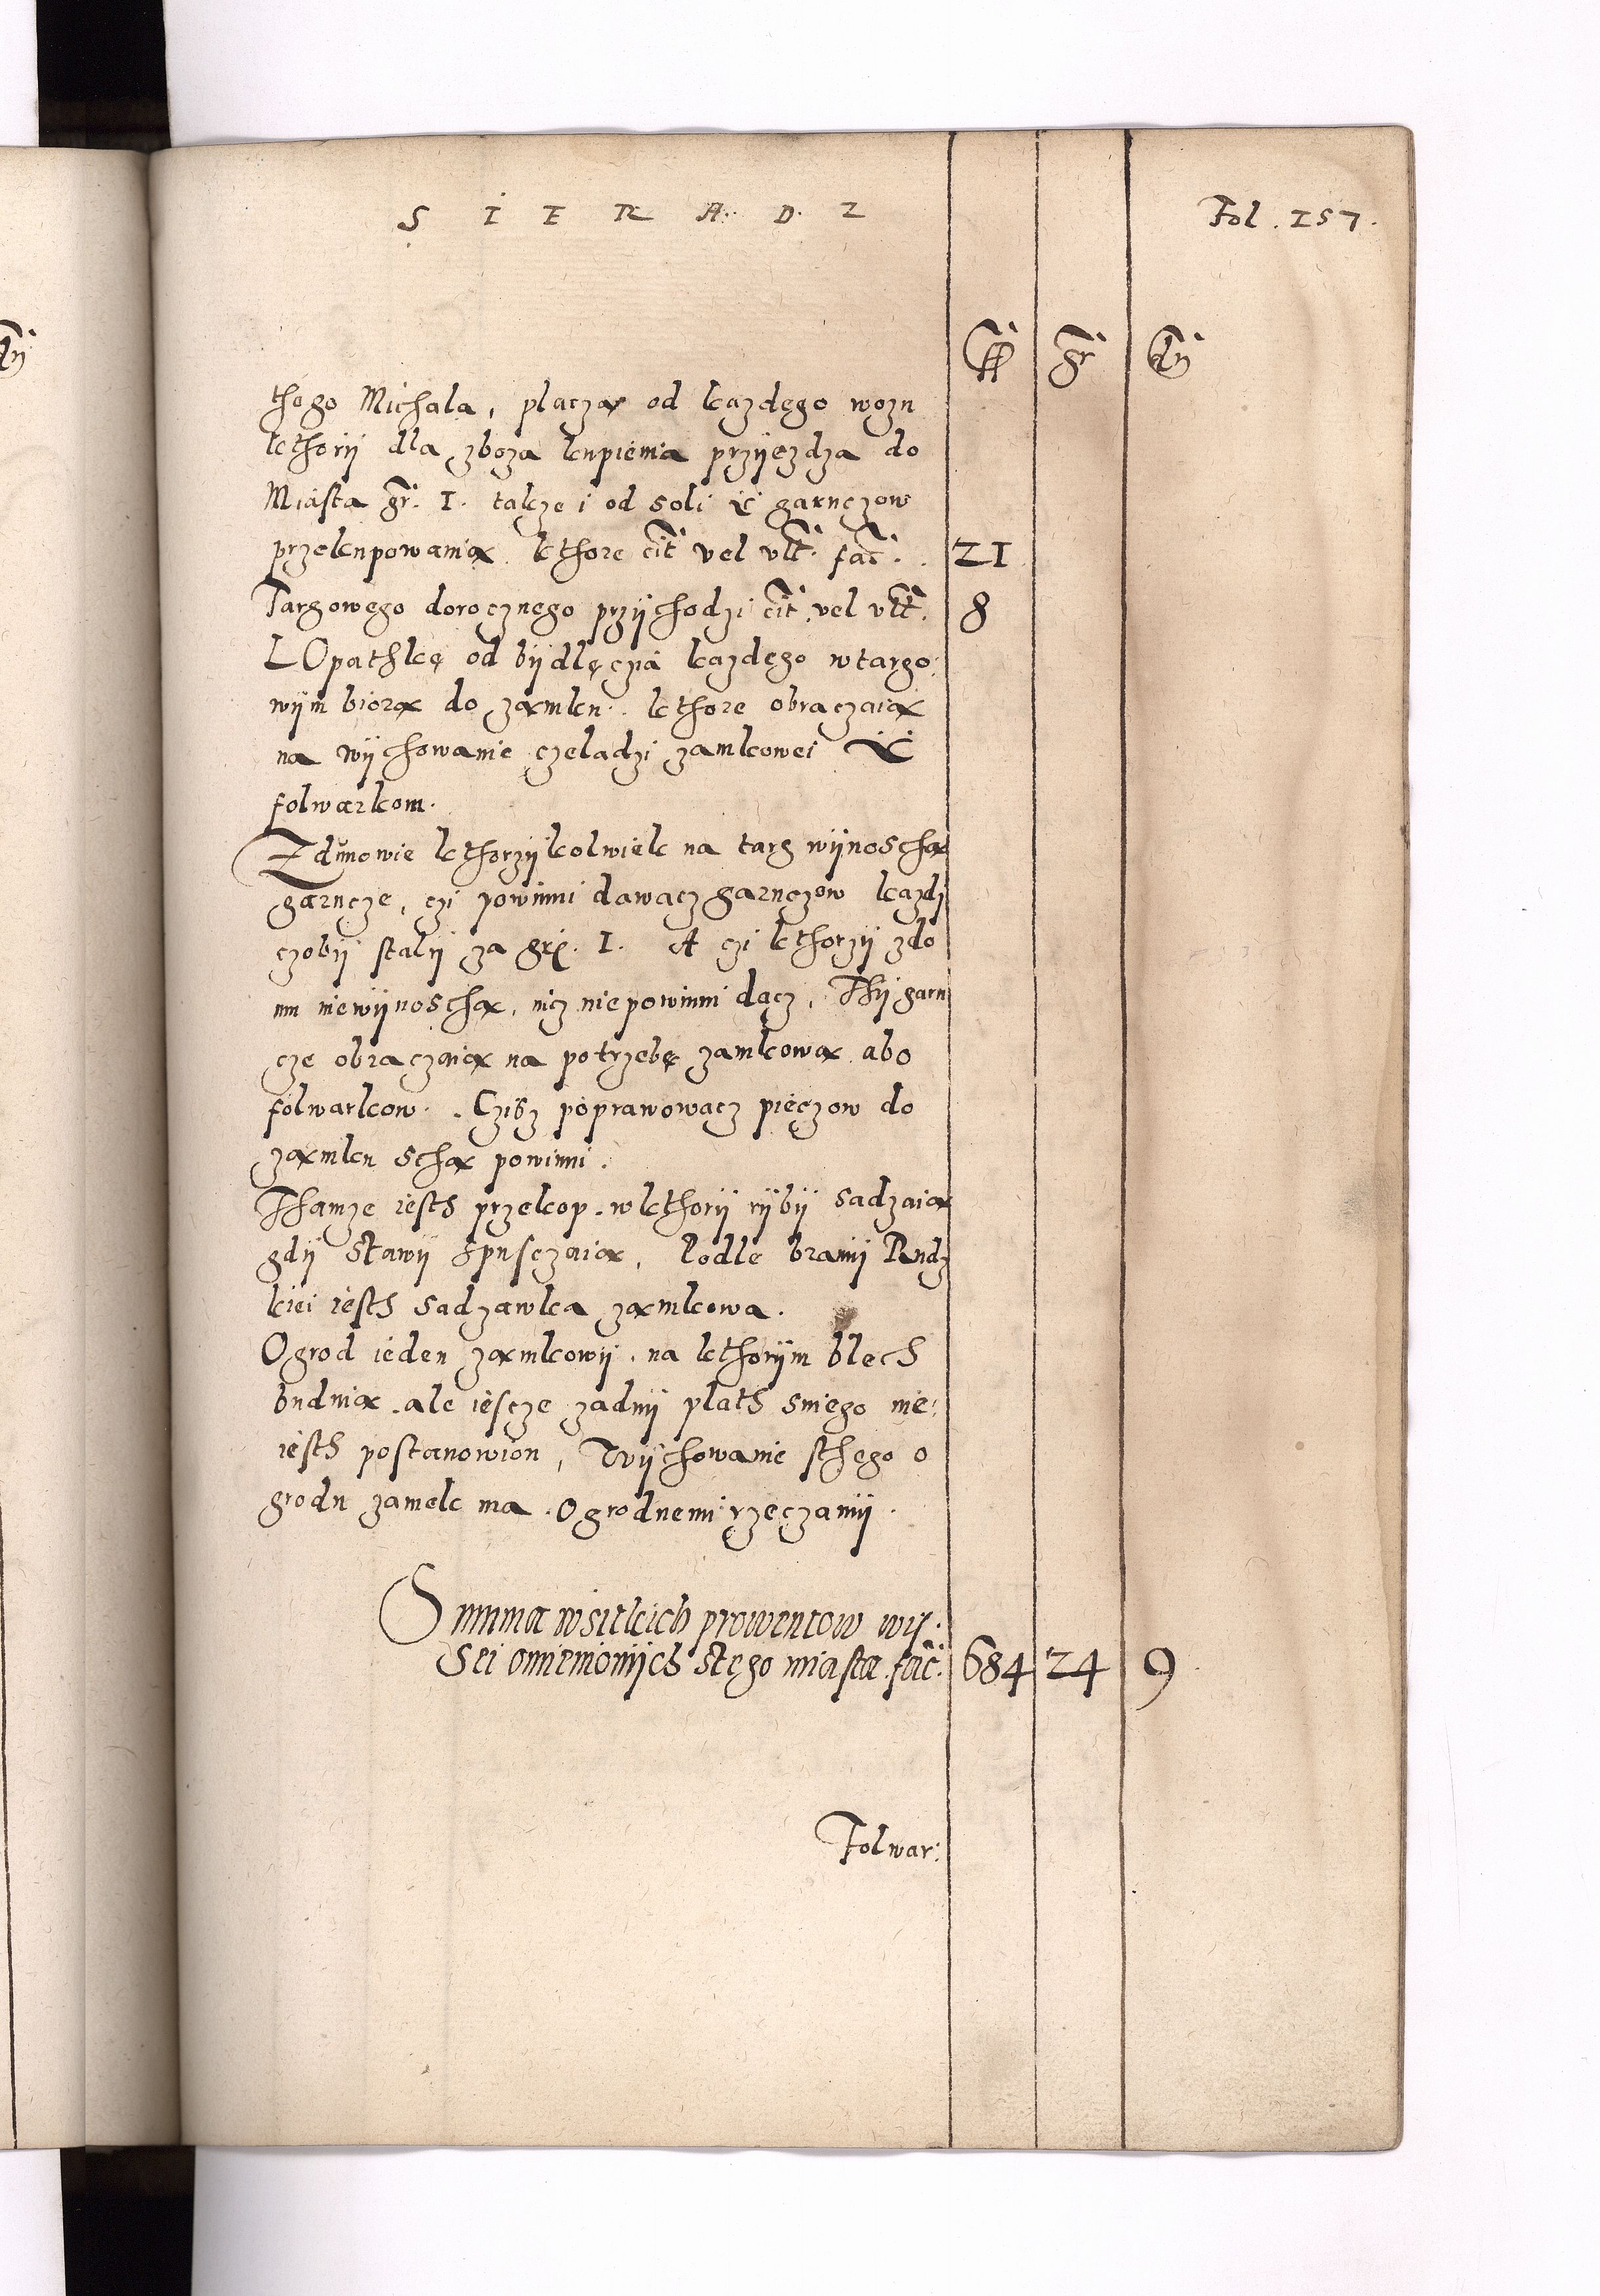 S I E R A D Z
Fol. 157.
fl gr dn
thego Michala, placzą od kazdego wozu
kthory dla zboza kupienia przyiezdza do
Miasta gr. 1. takze i od soli & garnczow
przekupowania. kthore cit vel vlt. fac. 21
Targowego dorocznego przychodzi cit. vel vlt. 8
LOpathkę od bydlęczia kazdego w targo:
wym biorą do zamku. kthore obraczaią
na wychowanie czeladzi zamkowei &
folwarkom.
Zdunowie kthorzykolwiek na targ wynoschą
garncze, czi powinni dawacz garnczow kazdi
czoby staly za gr. 1. A czi kthorzy zdo
mu niewynoschą, nicz nie powinni dacz, Thy garn
cze obraczaią na potrzebę zamkową abo
folwarkow. Czisz poprawowacz pieczow do
zamku schą powinni.
Thamze iesth przekop. w kthory ryby sadzaią
gdy Stawy Spusczaią, Podle bramy Rudz
kiei iesth Sadzawka zamkowa.
Ogrod ieden zamkowy. na kthorym blech
buduią. ale iescze zadny plath sniego nie:
iesth postanowion, Wychowanie sthego o
grodu zamek ma. Ogrodnemi rzeczamy.
Summa wsitkich prowentow wy:
Sei omienionych Stego miasta. fac: 684 24 9
Folwar: